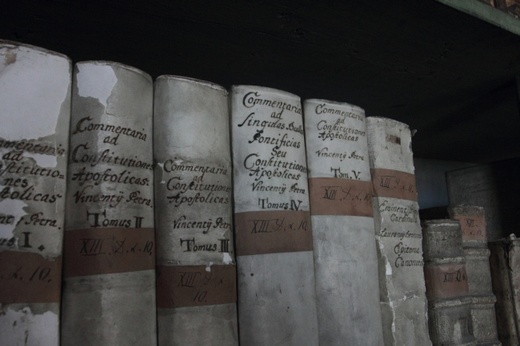 Commentaria
ad
Constitutio-
nes
Apostolicas
Petra.
Tomus I.
10.
Commentaria
ad
Constitutiones
Apostolicas
Vincentÿ Petra
Tomus II
XIII. 10.
Commentaria
ad
Constitutiones
Apostolicas
Vincentÿ Petra
Tomus III
XIII.
10.
Commentaria
ad
Singulas
Pontificias
Seu
Constitutiones
Apostolicas
Vincentÿ Petra
Tomus IV
XIII. 10.
Commentaria
ad
Constitutiones
Apostolicas
Vincentÿ Petra
Tom. V.
XIII. 10.
XIII. 10.
Cardina
Epitome
Canonum
XIII